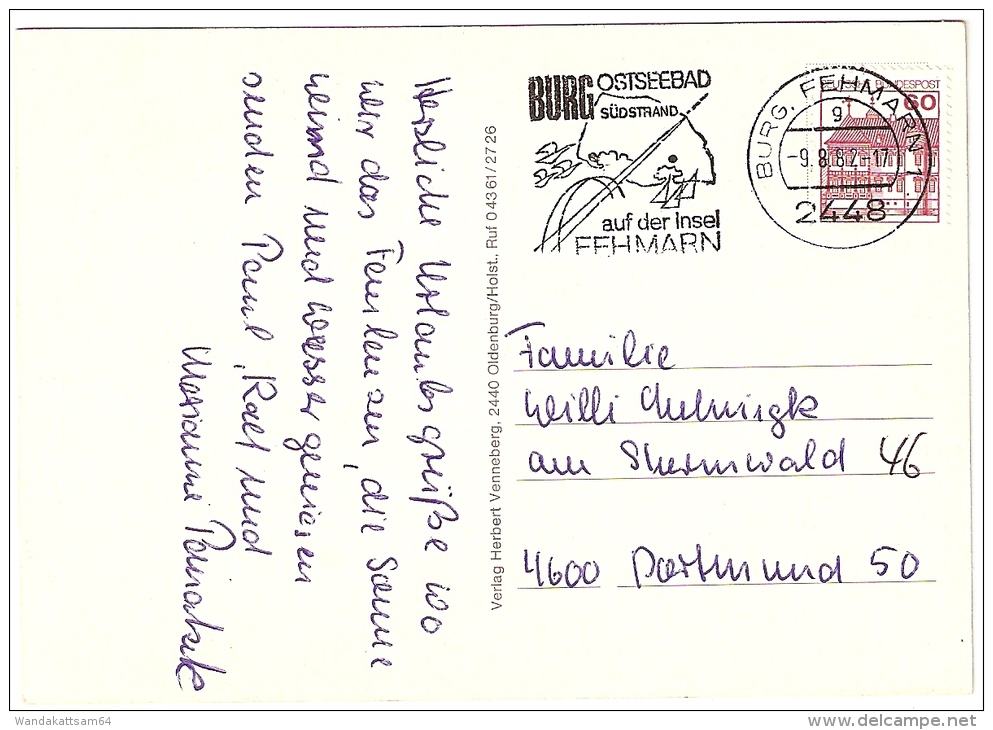 Herzliche Urlaubsgrüße wo
wir das Faulenzen, die Sonne
wind und wasser geniesen
senden Paul, Ralf und
Marianne
BURG OSTSEEBAD
SÜDSTRAND
auf der Insel
FEHMARN
BURG, FEHMARN 1
g
-9.8.82-17
2448
DEUTSCHE BUNDESPOST
60
Verlag Herbert Venneberg, 2440 Oldenburg/Holst., Ruf 0 43 61/27 26
Familie
Willi
am 46
4600 Dortmund 50
Wandakattsam64
www.delcampe.net